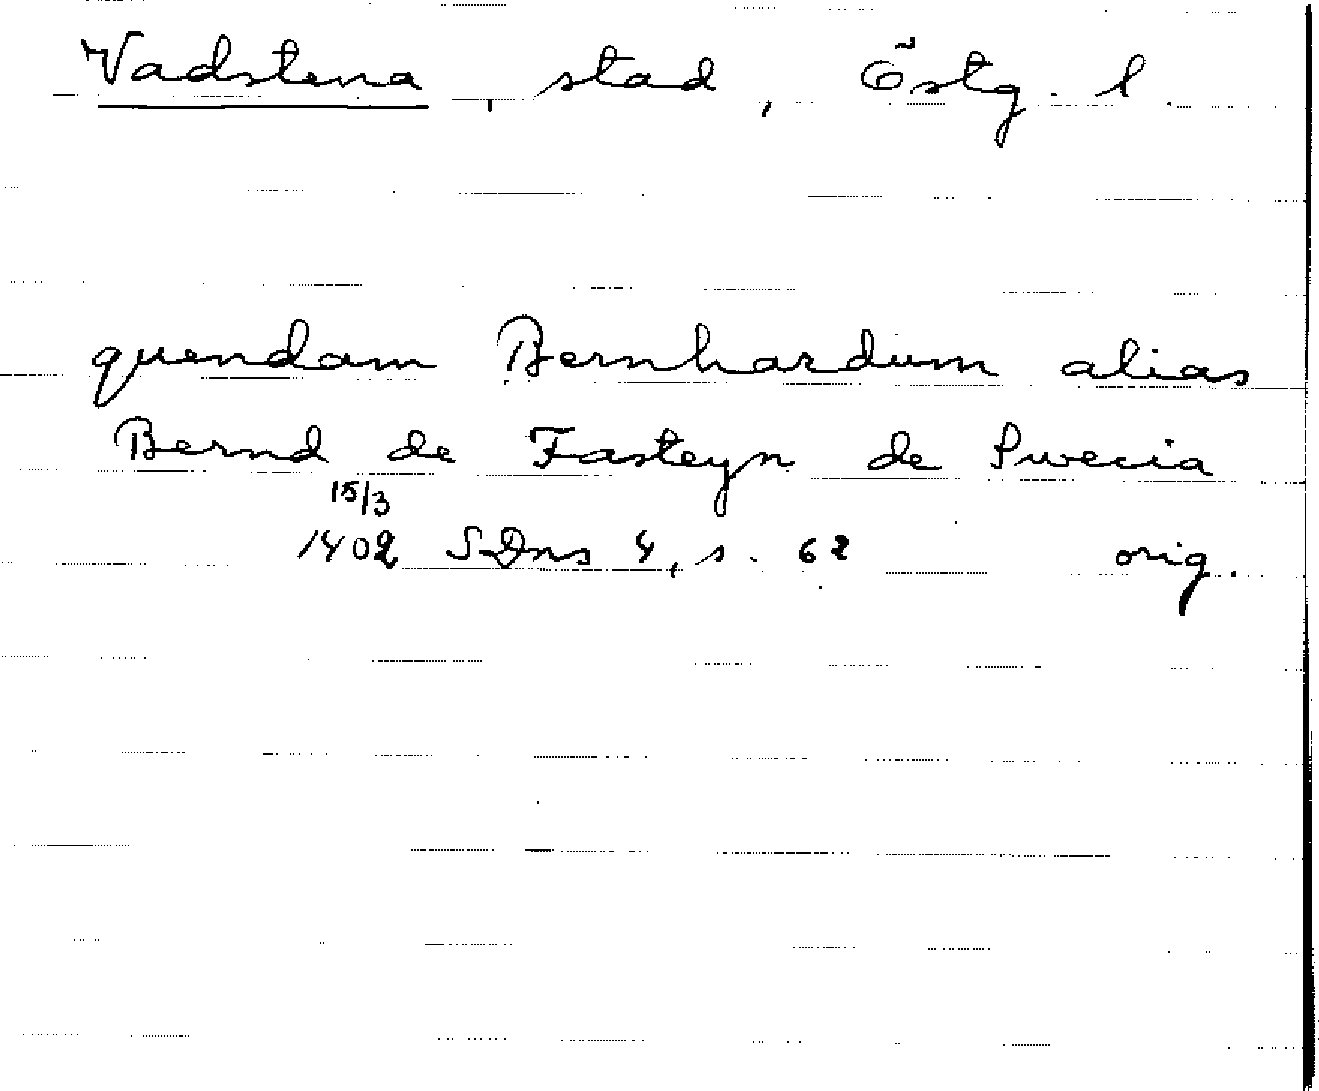 Vadstena, stad, Östg. l.
quendam Bernhardum alias
Bernd de Fasteyn de Swecia
15/3
1402 SDns 4, s. 62 orig.